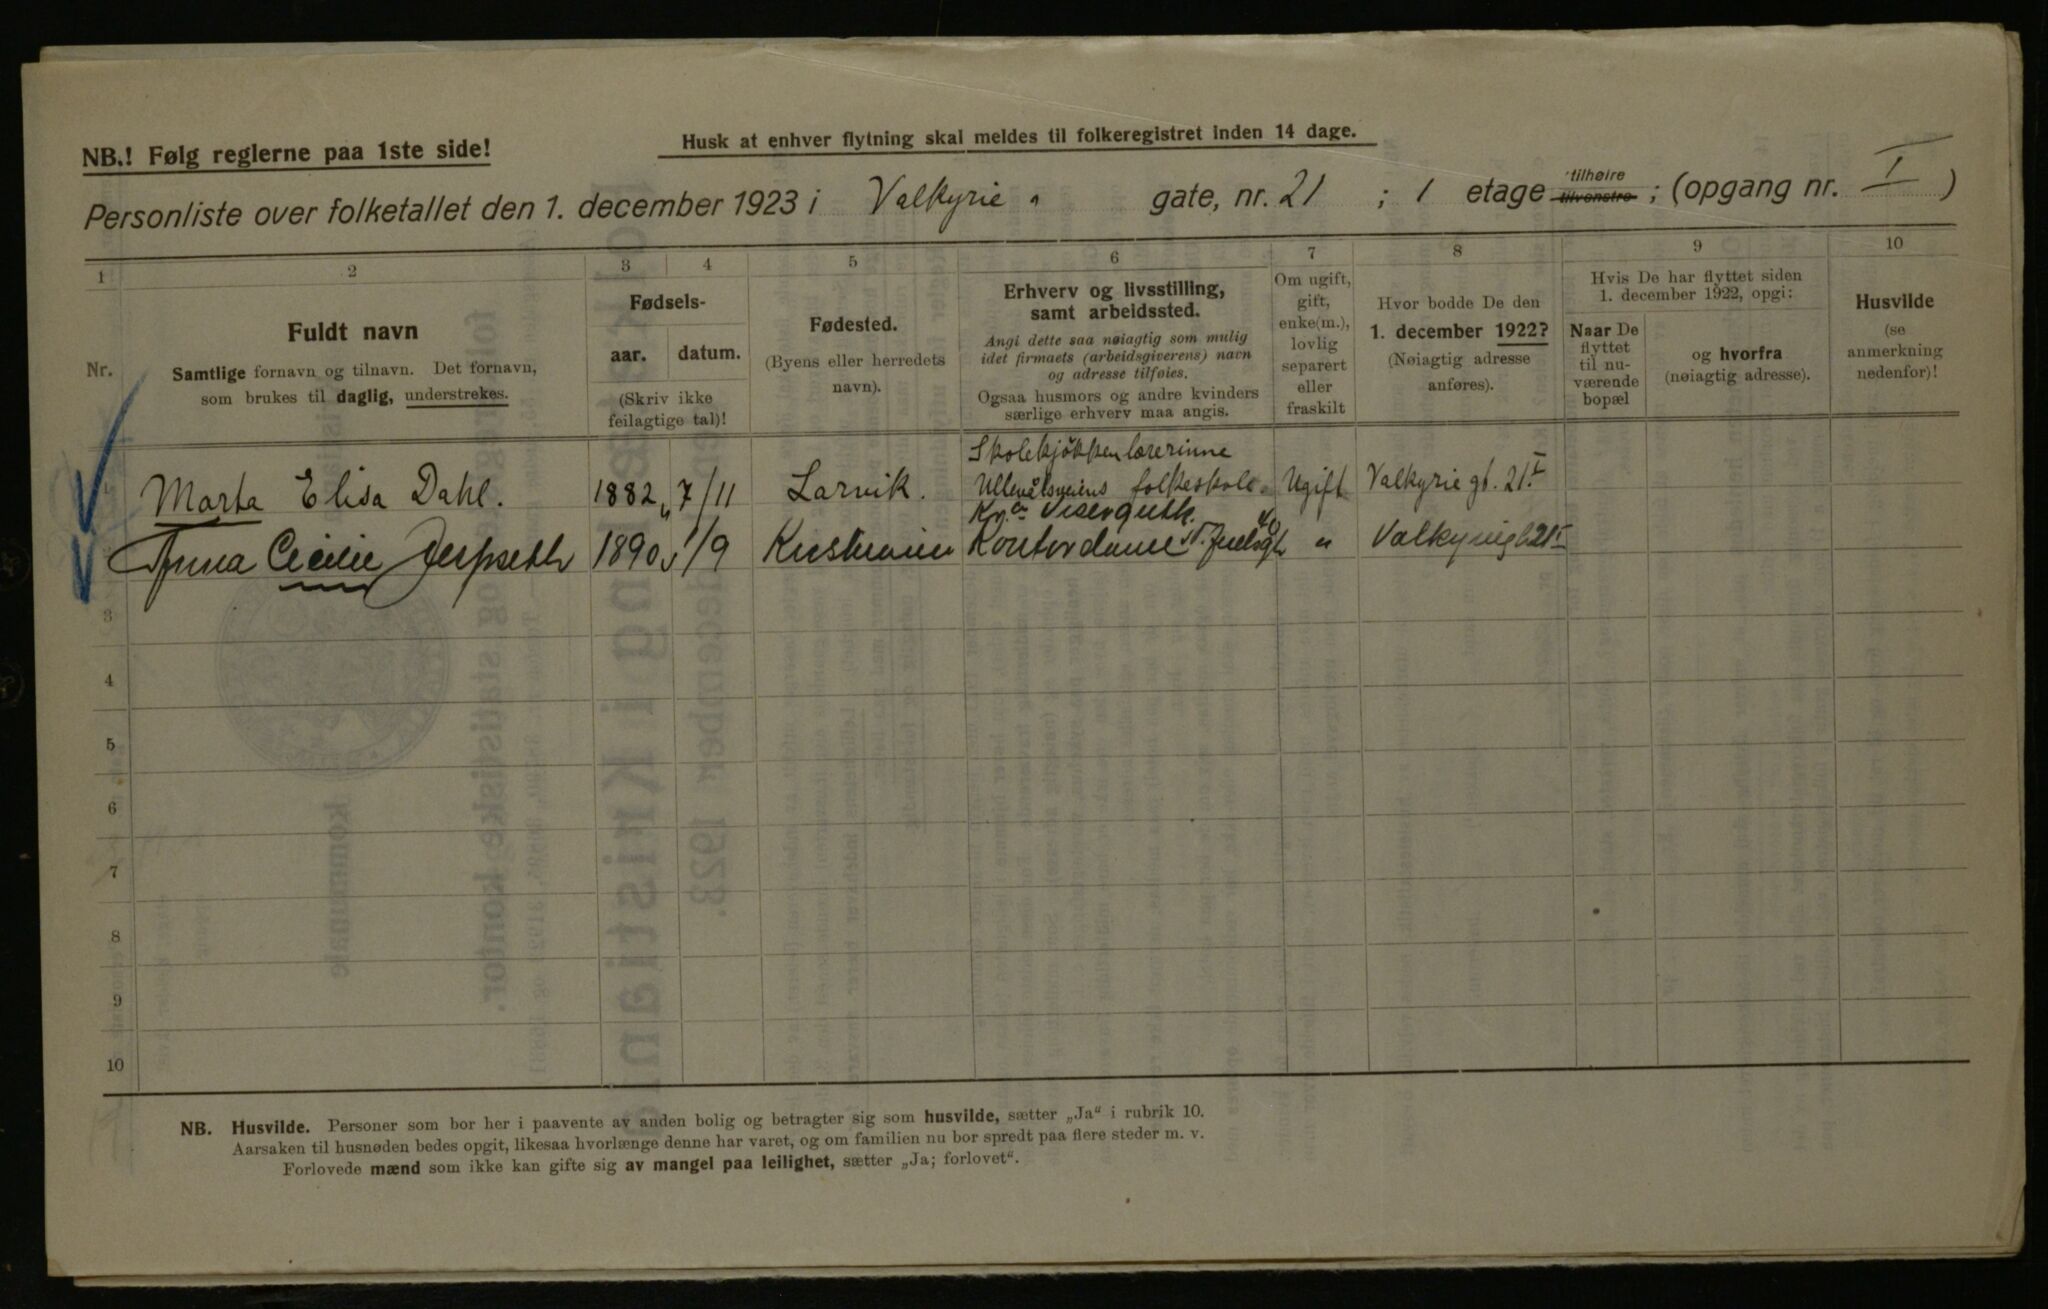 NB.! Følg reglerne paa 1ste side!
Husk at enhver flytning skal meldes til folkeregistret inden 14 dage.
Personliste over folketallet den 1. december 1923 i Valkyrie " gate, nr. 21 ; 1 etage tilhøire tilvenstre ; (opgang nr. I )
1 2 3 4 5 6 7 8 9 10
Nr.
Fuldt navn
Samtlige fornavn og tilnavn. Det fornavn,
som brukes til daglig, understrekes.
Fødsels-
aar. datum.
(Skriv ikke
feilagtige tal)!
Fødested.
(Byens eller herredets
navn).
Erhverv og livsstilling,
samt arbeidssted.
Angi dette saa nøiagtig som mulig
idet firmaets (arbeidsgiverens) navn
og adresse tilføies.
Ogsaa husmors og andre kvinders
særlige erhverv maa angis.
Om ugift,
gift,
enke(m.),
lovlig
separert
eller
fraskilt
Hvor bodde De den
1. december 1922?
(Nøiagtig adresse
anføres).
Hvis De har flyttet siden
1. december 1922, opgi:
Naar De
flyttet
til nu-
værende
bopæl
og hvorfra
(nøiagtig adresse).
Husvilde
(se
anmerkning
nedenfor)!
Skolekjøkkenlærerinne
1 Marta Elisa Dahl. 1882 7/11 Larvik. Ullevålsveiens folkeskole. Ugift Valkyrie gt. 21 I
Kr.a
Anna Cecilie 1890 1/9 Kristiania Kontordame N. Juelsgt 40 " Valkyriegt 21 I
3
4
5
6
7
8
9
10
NB. Husvilde. Personer som bor her i paavente av anden bolig og betragter sig som husvilde, sætter „Ja“ i rubrik 10.
Aarsaken til husnøden bedes opgit, likesaa hvorlænge denne har varet, og om familien nu bor spredt paa flere steder m. v.
Forlovede mænd som ikke kan gifte sig av mangel paa leilighet, sætter „Ja; forlovet“.